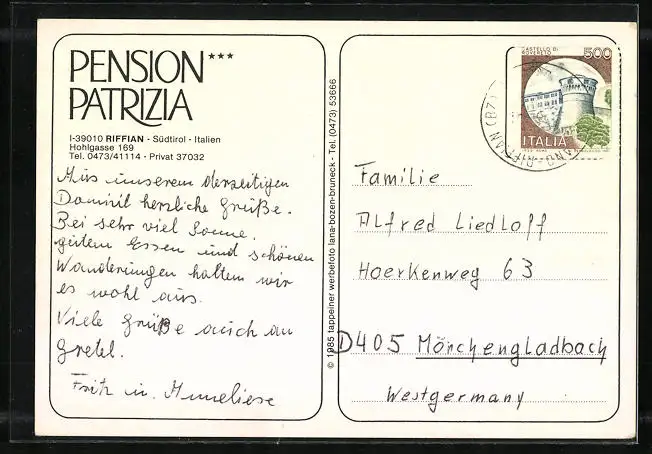 PENSION ***
PATRIZIA
I-39010 RIFFIAN - Südtirol - Italien
Hohlgasse 169
Tel. 0473/41114 - Privat 37032
Aus unserem derzeitigen
Domizil herzliche Grüße.
Bei sehr viel Sonne,
gutem Essen und schönen
Wanderungen halten wir
es wohl aus.
Viele Grüße auch an
Gretel.
Fritz u. Anneliese
© 1985 tappeiner werbefoto lana-bozen-bruneck - Tel. (0473) 53666
CASTELLO DI
ROVERETO
500
ITALIA
RIFFIAN (BZ)
Familie
Alfred Liedloff
Hoerkenweg 63
D405 Mönchengladbach
Westgermany